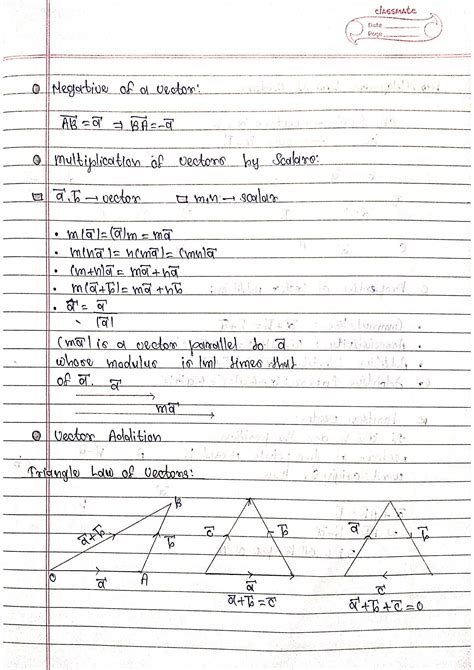 classmate
Date
Page
Negative of a vector:
AB⃗ = a⃗ → BA⃗ = -a⃗
Multiplication of vectors by Scalars:
a⃗, b⃗ → vector □ m,n → scalar
• m(a⃗) = (a⃗)m = ma⃗
• m(na⃗) = n(ma⃗) = (mn)a⃗
• (m+n)a⃗ = ma⃗ + na⃗
• m(a⃗+b⃗) = ma⃗ + nb⃗
• a⃗ = a⃗
|a⃗|
(ma⃗) is a vector parallel to a⃗
whose modulus is |m| times that
of a⃗. a⃗
ma⃗
Vector Addition
Triangle Law of Vectors:
B
a⃗+b⃗ b⃗ c⃗ b⃗ a⃗ b⃗
O a⃗ A a⃗ c⃗
a⃗+b⃗=c⃗ a⃗+b⃗+c⃗=0